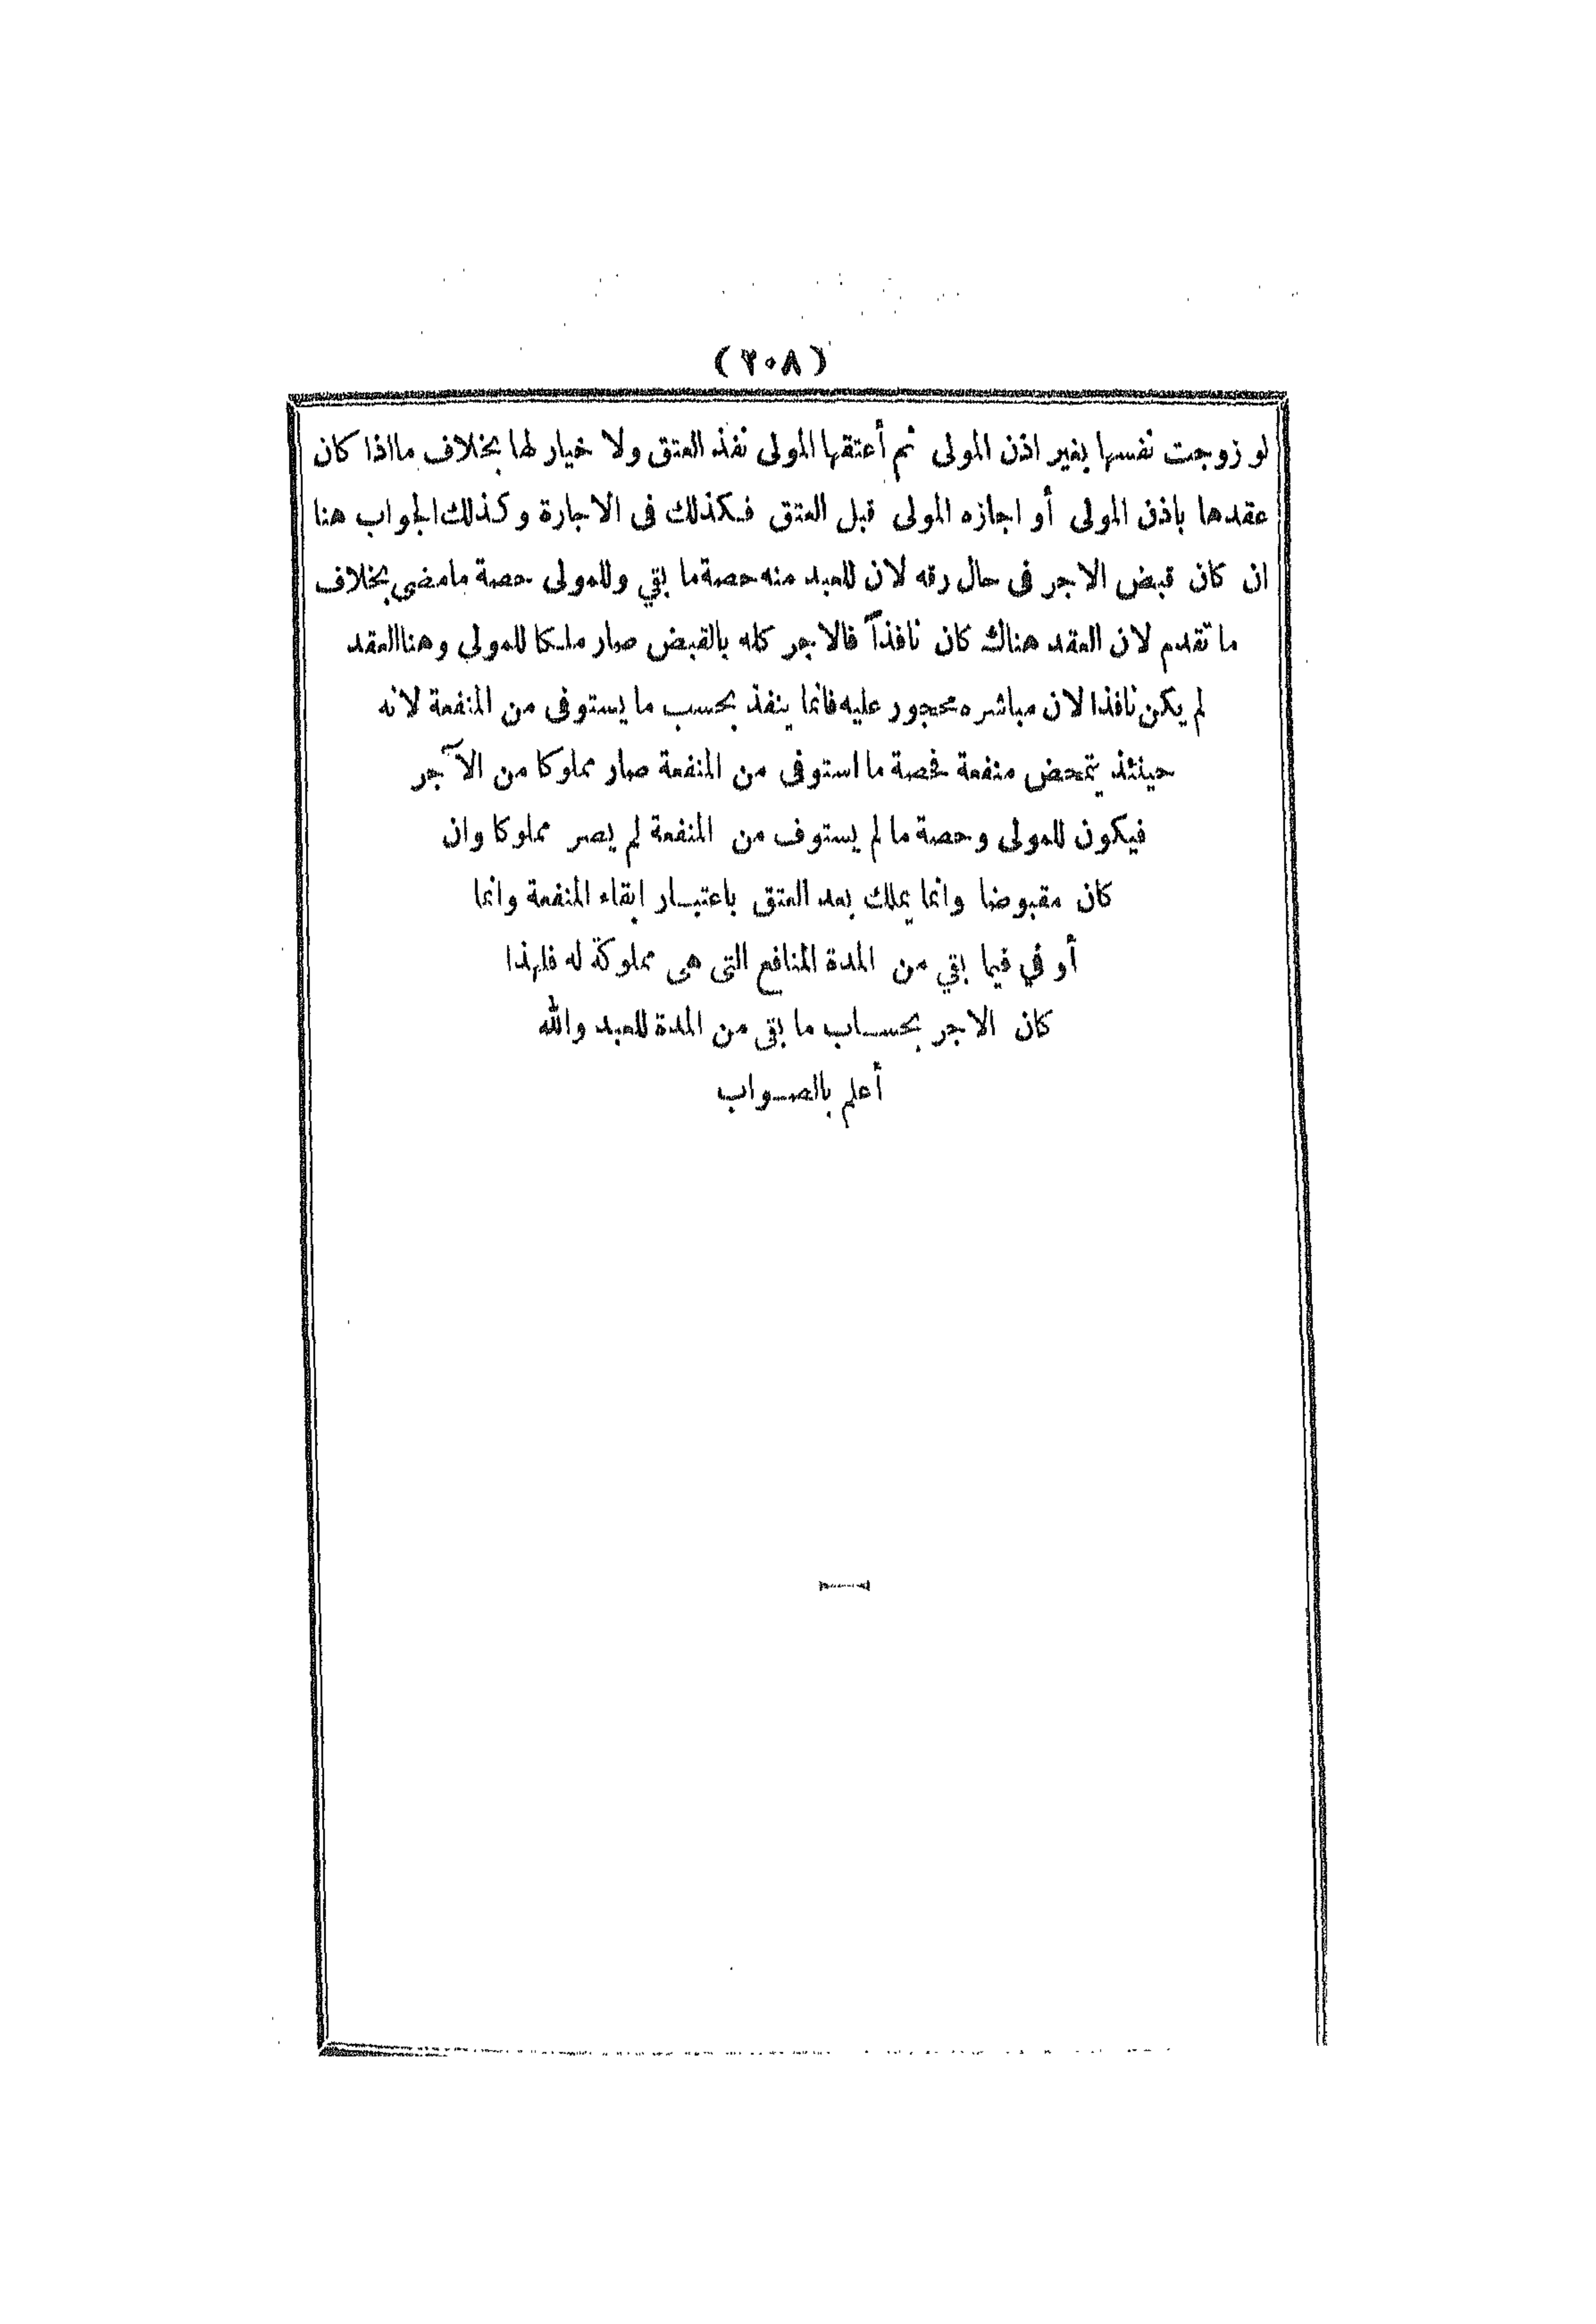 (٢٠٨)
لو زوجت نفسها بغير اذن المولى ثم أعتقها المولى نفذ العتق ولا خيار لها بخلاف ما اذا كان
عقدها باذن المولى أو اجازه المولى قبل العتق فكذلك فى الاجارة وكذلك الجواب هنا
ان كان قبض الاجر فى حال رقه لان للعبد منه حصة ما بقي وللمولى حصة ما مضى بخلاف
ما تقدم لان العقد هناك كان نافذاً فالاجر كله بالقبض صار ملكا للمولى وهنا العقد
لم يكن نافذا لان مباشره محجور عليه فانما ينفذ بحسب ما يستوفى من المنفعة لانه
حينئذ يتمحض منفعة فحصة ما استوفى من المنفعة صار مملوكا من الآجر
فيكون للمولى وحصة ما لم يستوف من المنفعة لم يصر مملوكا وان
كان مقبوضا وانما يملك بعد العتق باعتبار ابقاء المنفعة وانما
أوفي فيما بقي من المدة المنافع التى هى مملوكة له فلهذا
كان الاجر بحساب ما بقى من المدة للعبد والله
أعلم بالصواب